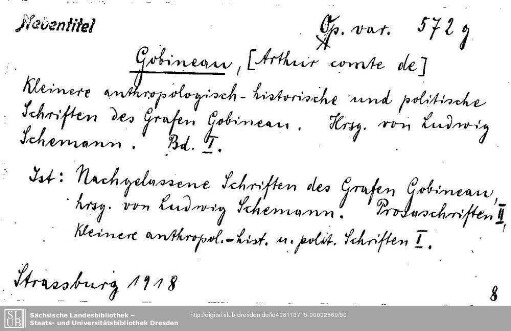 Nebentitel
Op. var. 572 g
Gobineau, [Arthur comte de]
Kleinere anthropologisch-historische und politische
Schriften des Grafen Gobineau. Hrsg. von Ludwig
Schemann. Bd. I.
Ist: Nachgelassene Schriften des Grafen Gobineau,
hrsg. von Ludwig Schemann. Prosaschriften II,
Kleinere anthropol.-hist. u. polit. Schriften I.
Strassburg 1918
8
SLUB
Sächsische Landesbibliothek –
Staats- und Universitätsbibliothek Dresden